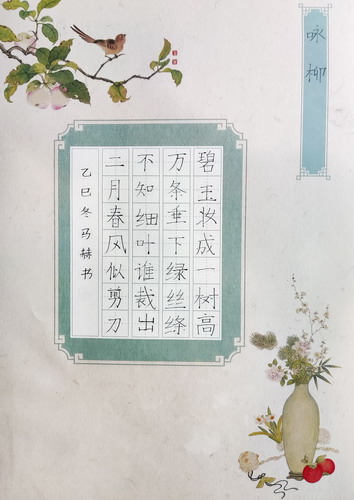 咏柳
碧玉妆成一树高
万条垂下绿丝绦
不知细叶谁裁出
二月春风似剪刀
乙巳冬马赫书